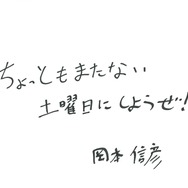 ちょっともまたない
土曜日にしようぜ!
岡本信彦